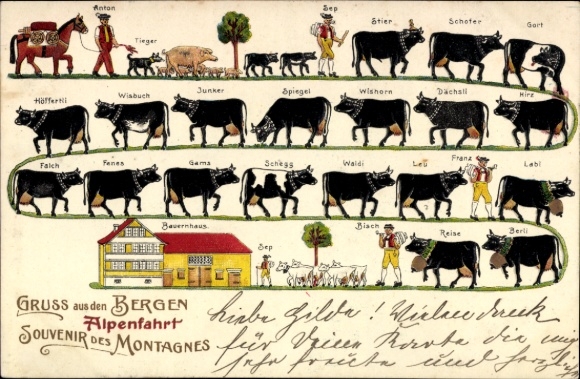 Anton
Tieger
Sep
Stier
Schofer
Gort
Höffertli
Wisbuch
Junker
Spiegel
Wishorn
Dächsli
Hirz
Falch
Fenes
Gams
Schegg
Waldi
Leu
Franz
Labi
Bauernhaus.
Sep
Bisch
Reise
Berli
GRUSS aus den BERGEN
Alpenfahrt
SOUVENIR DES MONTAGNES
Liebe Hilde! Vielen dank
für Deine Karte die mich
sehr freute und herzlich